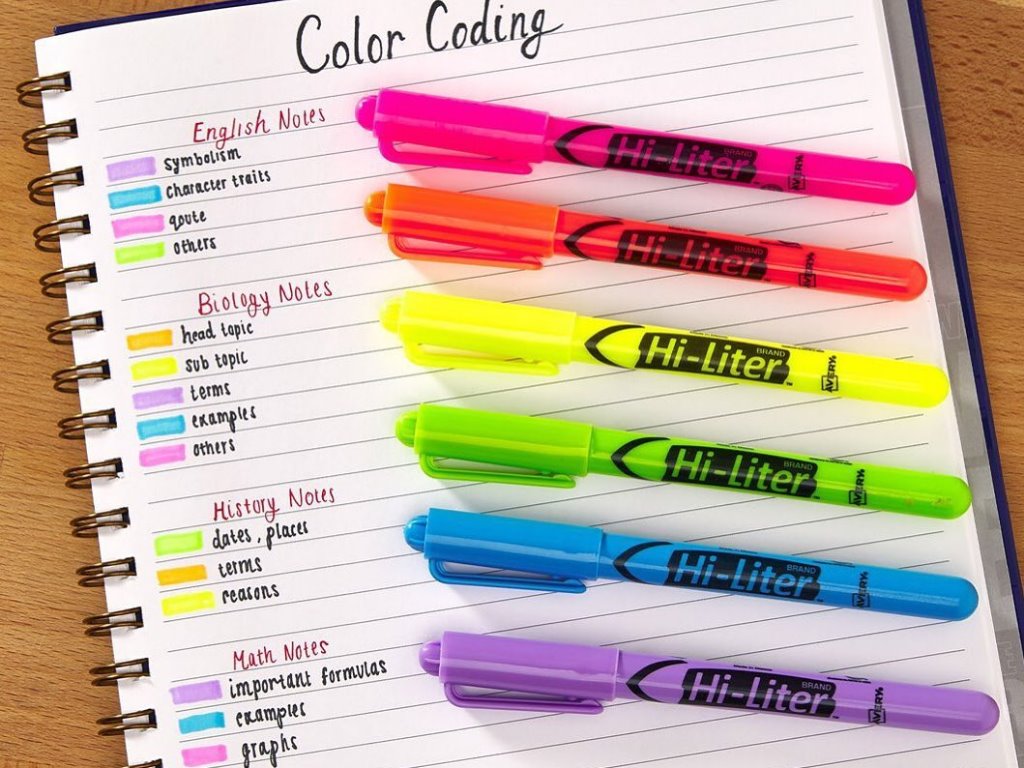 Color Coding
English Notes
symbolism
character traits
qoute
others
Biology Notes
head topic
sub topic
terms
examples
others
History Notes
dates, places
terms
reasons
Math Notes
important formulas
examples
graphs
Hi-Liter BRAND AVERY
Hi-Liter BRAND AVERY
Hi-Liter BRAND ™ AVERY
Hi-Liter BRAND AVERY
Hi-Liter BRAND AVERY
Hi-Liter BRAND AVERY